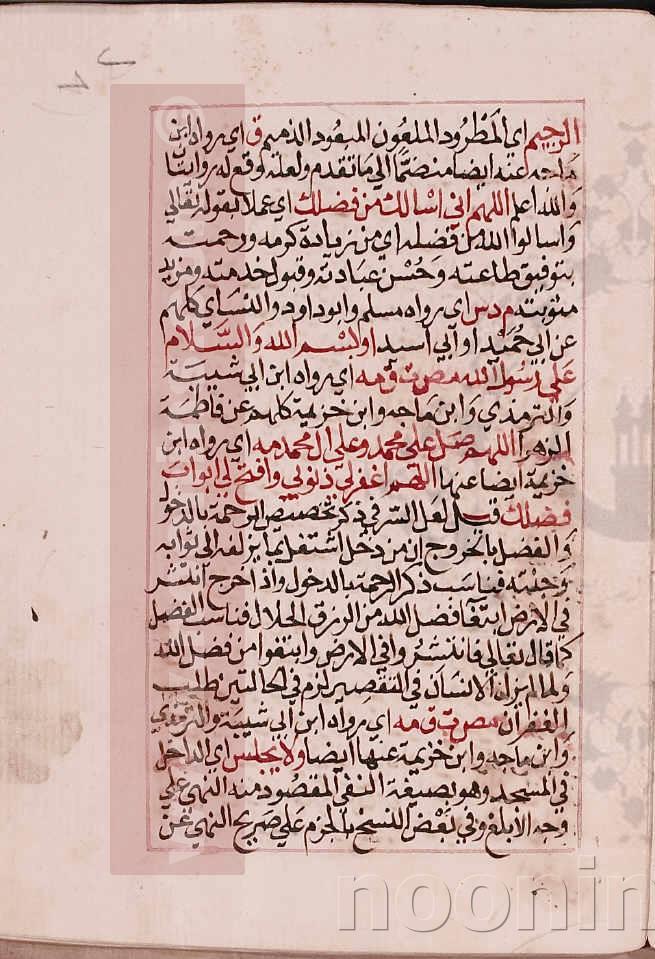 الرجيم اي المطرود الملعون المبعود الذميم ق اي رواه ابن
ماجه عنه ايضا منضما الي ما تقدم ولعله وقع له روايتان
والله اعلم اللهم اني اسالك من فضلك اي عملا بقوله تعالي
واسالوا الله من فضله اي من زيادة كرمه ورحمته
بتوفيق طاعته وحسن عبادته وقبول خدمته ومزيد
مثوبته م د س اي رواه مسلم وابو داود والنساي كلهم
عن ابي حميد او ابي اسيد او لبسم الله والسلام
علي رسول الله مص ت ق مه اي رواه ابن ابي شيبة
والترمذي وابن ماجه وابن خزيمة كلهم عن فاطمة
الزهرا اللهم صل علي محمد وعلي ال محمد مه اي رواه ابن
خزيمة ايضا عنها اللهم اغفر لي ذنوبي وافتح لي ابواب
فضلك قيل لعل السر في ذكر تخصيص الرحمة بالدخول
والفضل بالخروج ان من دخل اشتغل بما يزلفه الي ثوابه
وجنته فيناسب ذكر الرحمة بالدخول واذا خرج انتشر
في الارض ابتغا فضل الله من الرزق الحلال فناسب الفضل
كما قال تعالي فانتشروا في الارض وابتغوا من فضل الله
ولما لم يزل الانسان في التقصير لزم في الحالتين طلب
الغفران مص ت ق مه اي رواه ابن ابي شيبة والترمذي
وابن ماجه وابن خزيمة عنها ايضا ولا يجلس اي الداخل
في المسجد وهو بصيغة النفي المقصود منه النهي علي
وجه الأبلغ وفي بعض النسخ بالجزم علي صريح النهي عن
noonin